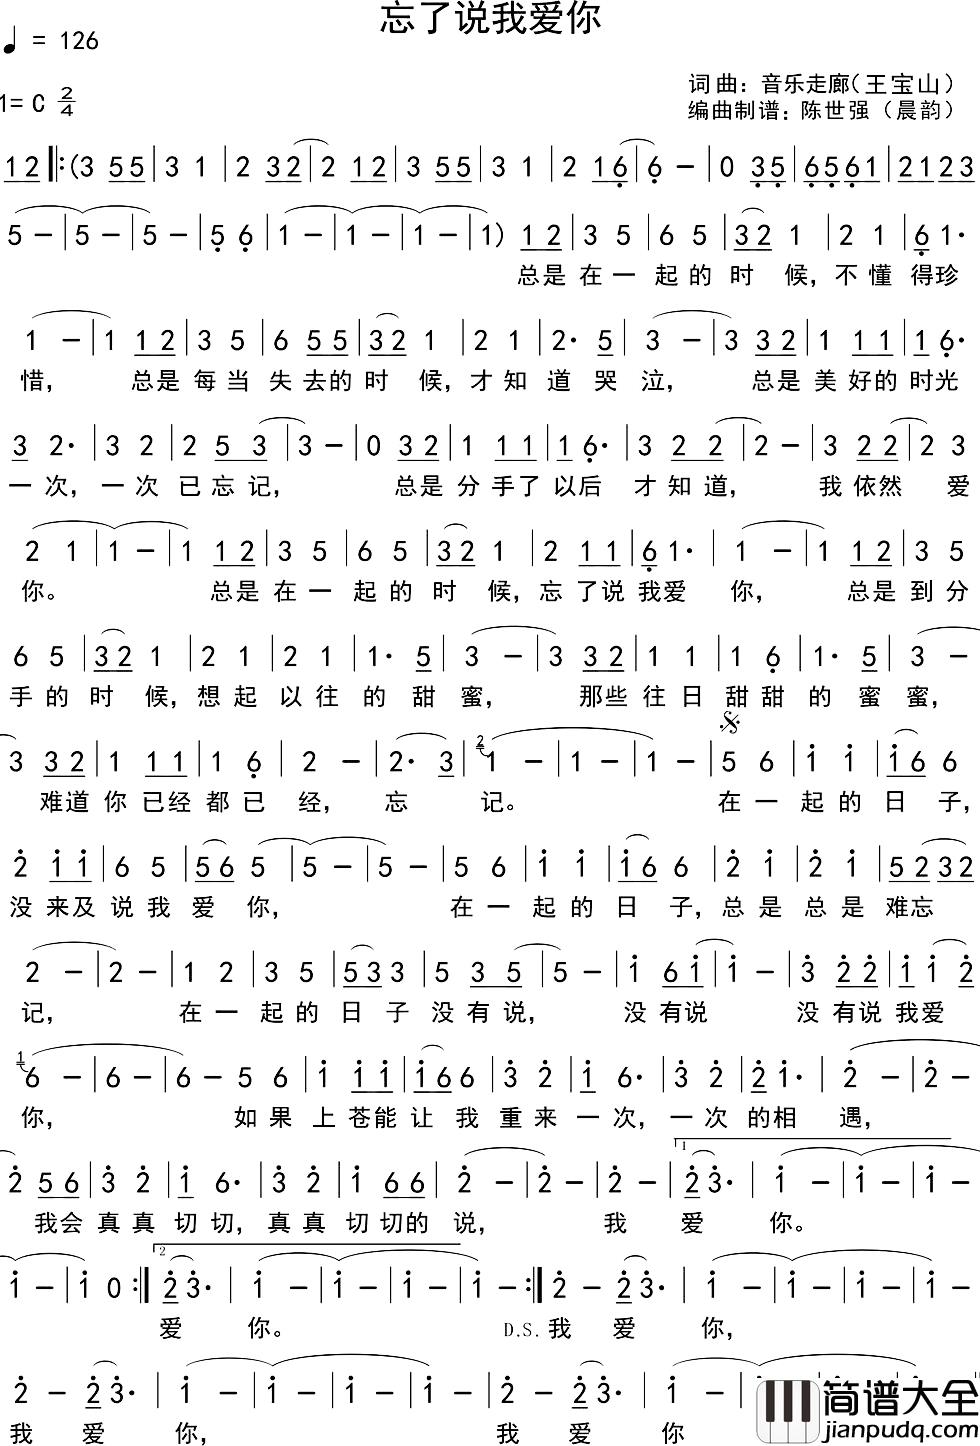 忘了说我爱你
♩ = 126
1= C 2/4
词曲：音乐走廊（王宝山）
编曲制谱：陈世强（晨韵）
1 2 ‖: (3 5 5 | 3 1 | 2 3 2 | 2 1 2 | 3 5 5 | 3 1 | 2 1 6̣ | 6̣ − | 0 3̣ 5̣ | 6̣ 5̣ 6̣ 1 | 2 1 2 3
5 − | 5 − | 5 − | 5̣ 6̣ | 1 − | 1 − | 1 − | 1) 1 2 | 3 5 | 6 5 | 3 2 1 | 2 1 | 6̣ 1·
总是 在一 起的 时 候，不懂 得珍
1 − | 1 1 2 | 3 5 | 6 5 5 | 3 2 1 | 2 1 | 2· 5 | 3 − | 3 3 2 | 1 1 1 | 1 6̣·
惜， 总是 每当 失去的 时 候，才知 道 哭 泣， 总是 美好的 时光
3 2· | 3 2 | 2 5 3 | 3 − | 0 3 2 | 1 1 1 | 1 6̣· | 3 2 2 | 2 − | 3 2 2 | 2 3
一次，一次 已忘记， 总是 分手了 以后 才知道， 我依然 爱
2 1 | 1 − | 1 1 2 | 3 5 | 6 5 | 3 2 1 | 2 1 1 | 6̣ 1· | 1 − | 1 1 2 | 3 5
你。 总是 在一 起的 时 候，忘 了说 我爱 你， 总是 到分
6 5 | 3 2 1 | 2 1 | 2 1 | 1· 5 | 3 − | 3 3 2 | 1 1 | 1 6̣ | 1· 5 | 3 −
手的 时 候，想起 以往 的 甜 蜜， 那些 往日 甜甜 的 蜜 蜜，
3 3 2 | 1 1 1 | 1 6̣ | 2 − | 2· 3 | 2 1 − | 1 − | 1 − | 5 6 | 1̇ 1̇ | 1̇ 6 6
难道 你 已经 都已 经， 忘 记。 在一 起的 日 子，
2̇ 1̇ 1̇ | 6 5 | 5 6 5 | 5 − | 5 − | 5 6 | 1̇ 1̇ | 1̇ 6 6 | 2̇ 1̇ | 2̇ 1̇ | 5 2 3 2
没 来及 说我 爱 你， 在一 起的 日 子，总是 总是 难忘
2 − | 2 − | 1 2 | 3 5 | 5 3 3 | 5 3 5 | 5 − | 1̇ 6 1̇ | 1̇ − | 3̇ 2̇ 2̇ | 1̇ 1̇ 2̇
记， 在一 起的 日 子 没有说， 没有说 没有说 我爱
1 6 − | 6 − | 6 − | 5 6 | 1̇ 1̇ 1̇ | 1̇ 6 6 | 3̇ 2̇ | 1̇ 6· | 3̇ 2̇ | 2̇ 1̇· | 2̇ − | 2̇ −
你， 如果 上苍能 让 我 重来 一次，一次 的相 遇，
2̇ 5 6 | 3̇ 2̇ | 1̇ 6· | 3̇ 2̇ | 1̇ 6 6 | 2̇ − | 2̇ − | 2̇ − | 1 2̇ 3̇· | 1̇ − | 1̇ − | 1̇ −
我会 真真 切切，真真 切切的 说， 我 爱 你。
1̇ − | 1̇ 0 :‖ 2 2̇ 3̇· | 1̇ − | 1̇ − | 1̇ − | 1̇ − :‖ 2̇ − | 2̇ 3̇· | 1̇ − | 1̇ − | 1̇ − | 1̇ −
爱 你。 D.S. 我 爱 你，
2̇ − | 2̇ 3̇· | 1̇ − | 1̇ − | 1̇ − | 1̇ − | 2̇ − | 2̇ 3̇· | 1̇ −
我 爱 你， 我 爱 你
简谱大全
jianpudq.com